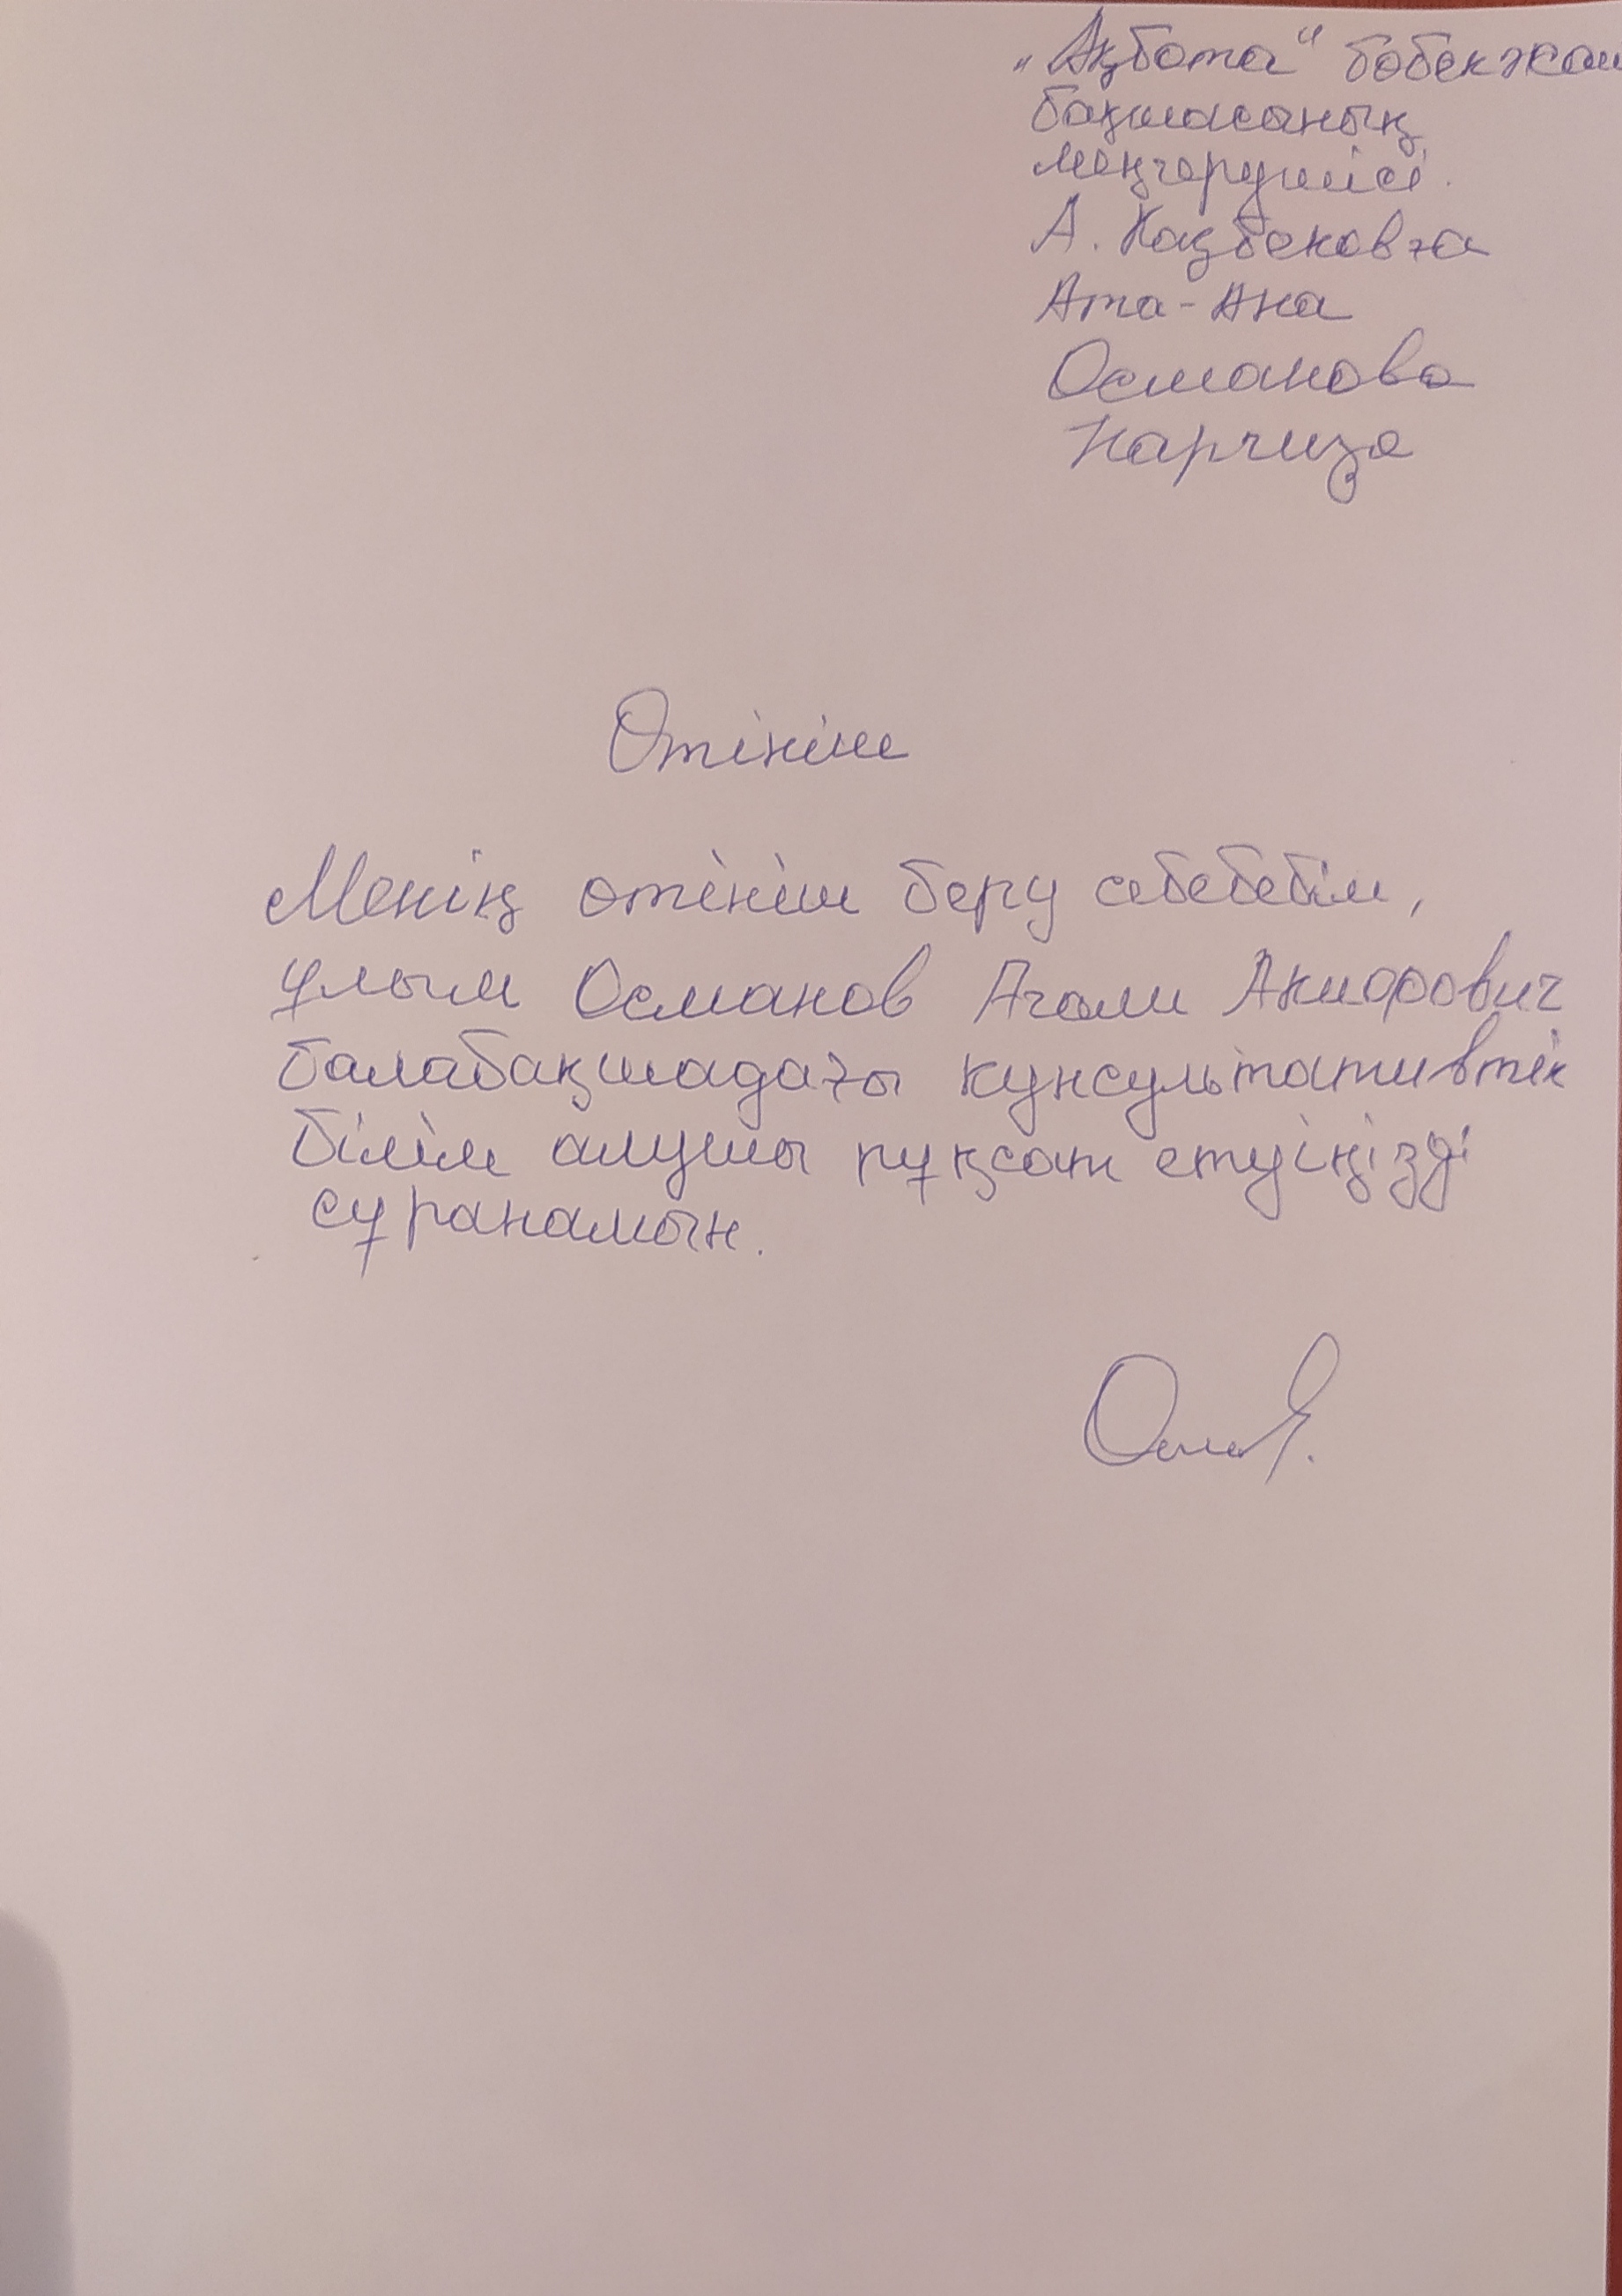 „Ақбота“ бөбекжай
бақшасының
меңгерушісі.
А. Казбековаға
Ата-Ана
Османова
Наргиза
Өтініш
Менің өтініш беру себебебім,
ұлым Османов Агали Акифович
балабақшадағы кунсультативтік
білім алушы рұқсат етуіңізді
сұранамын.